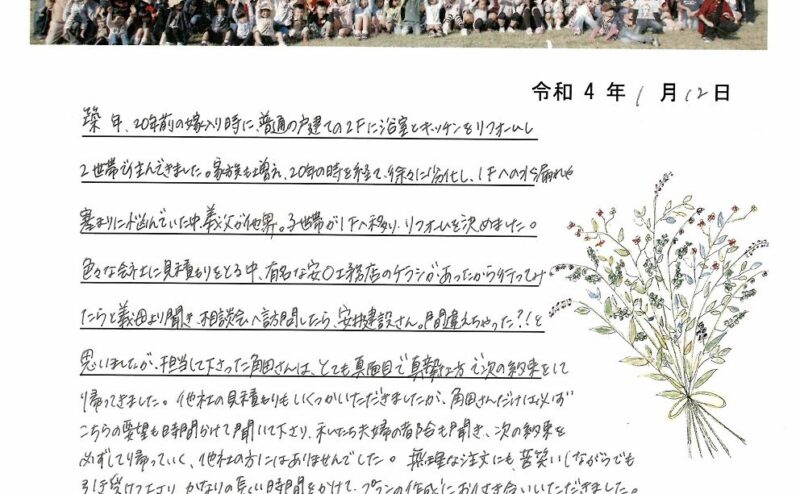 令和 4 年 1 月 12 日
築 年、20年前の嫁入り時に、普通の戸建ての2Fに浴室とキッチンをリフォームし
2世帯で住んできました。家族も増え、20年の時を経て、徐々に劣化し、1Fへの水漏れや
塞まりに悩んでいた中、義父が他界。子世帯が1Fへ移り、リフォームを決めました。
色々な会社に見積もりをとる中、有名な安〇工務店のチラシがあったから行ってみ
たらと義母より聞き、相談会へ訪問したら、安城建設さん。間違えちゃった?!と
思いましたが、担当して下さった角田さんは、とても真面目で真摯な方で次の約束をして
帰ってきました。他社の見積もりもいくつかいただきましたが、角田さんだけは必ず
こちらの要望も時間かけて聞いて下さり、私たち夫婦の都合も聞き、次の約束を
必ずして帰っていく、他社の方にはありませんでした。無理な注文にも、苦笑いしながらでも
引き受けて下さり、かなりの長い時間をかけて、プランの作成におつき合いいただきました。